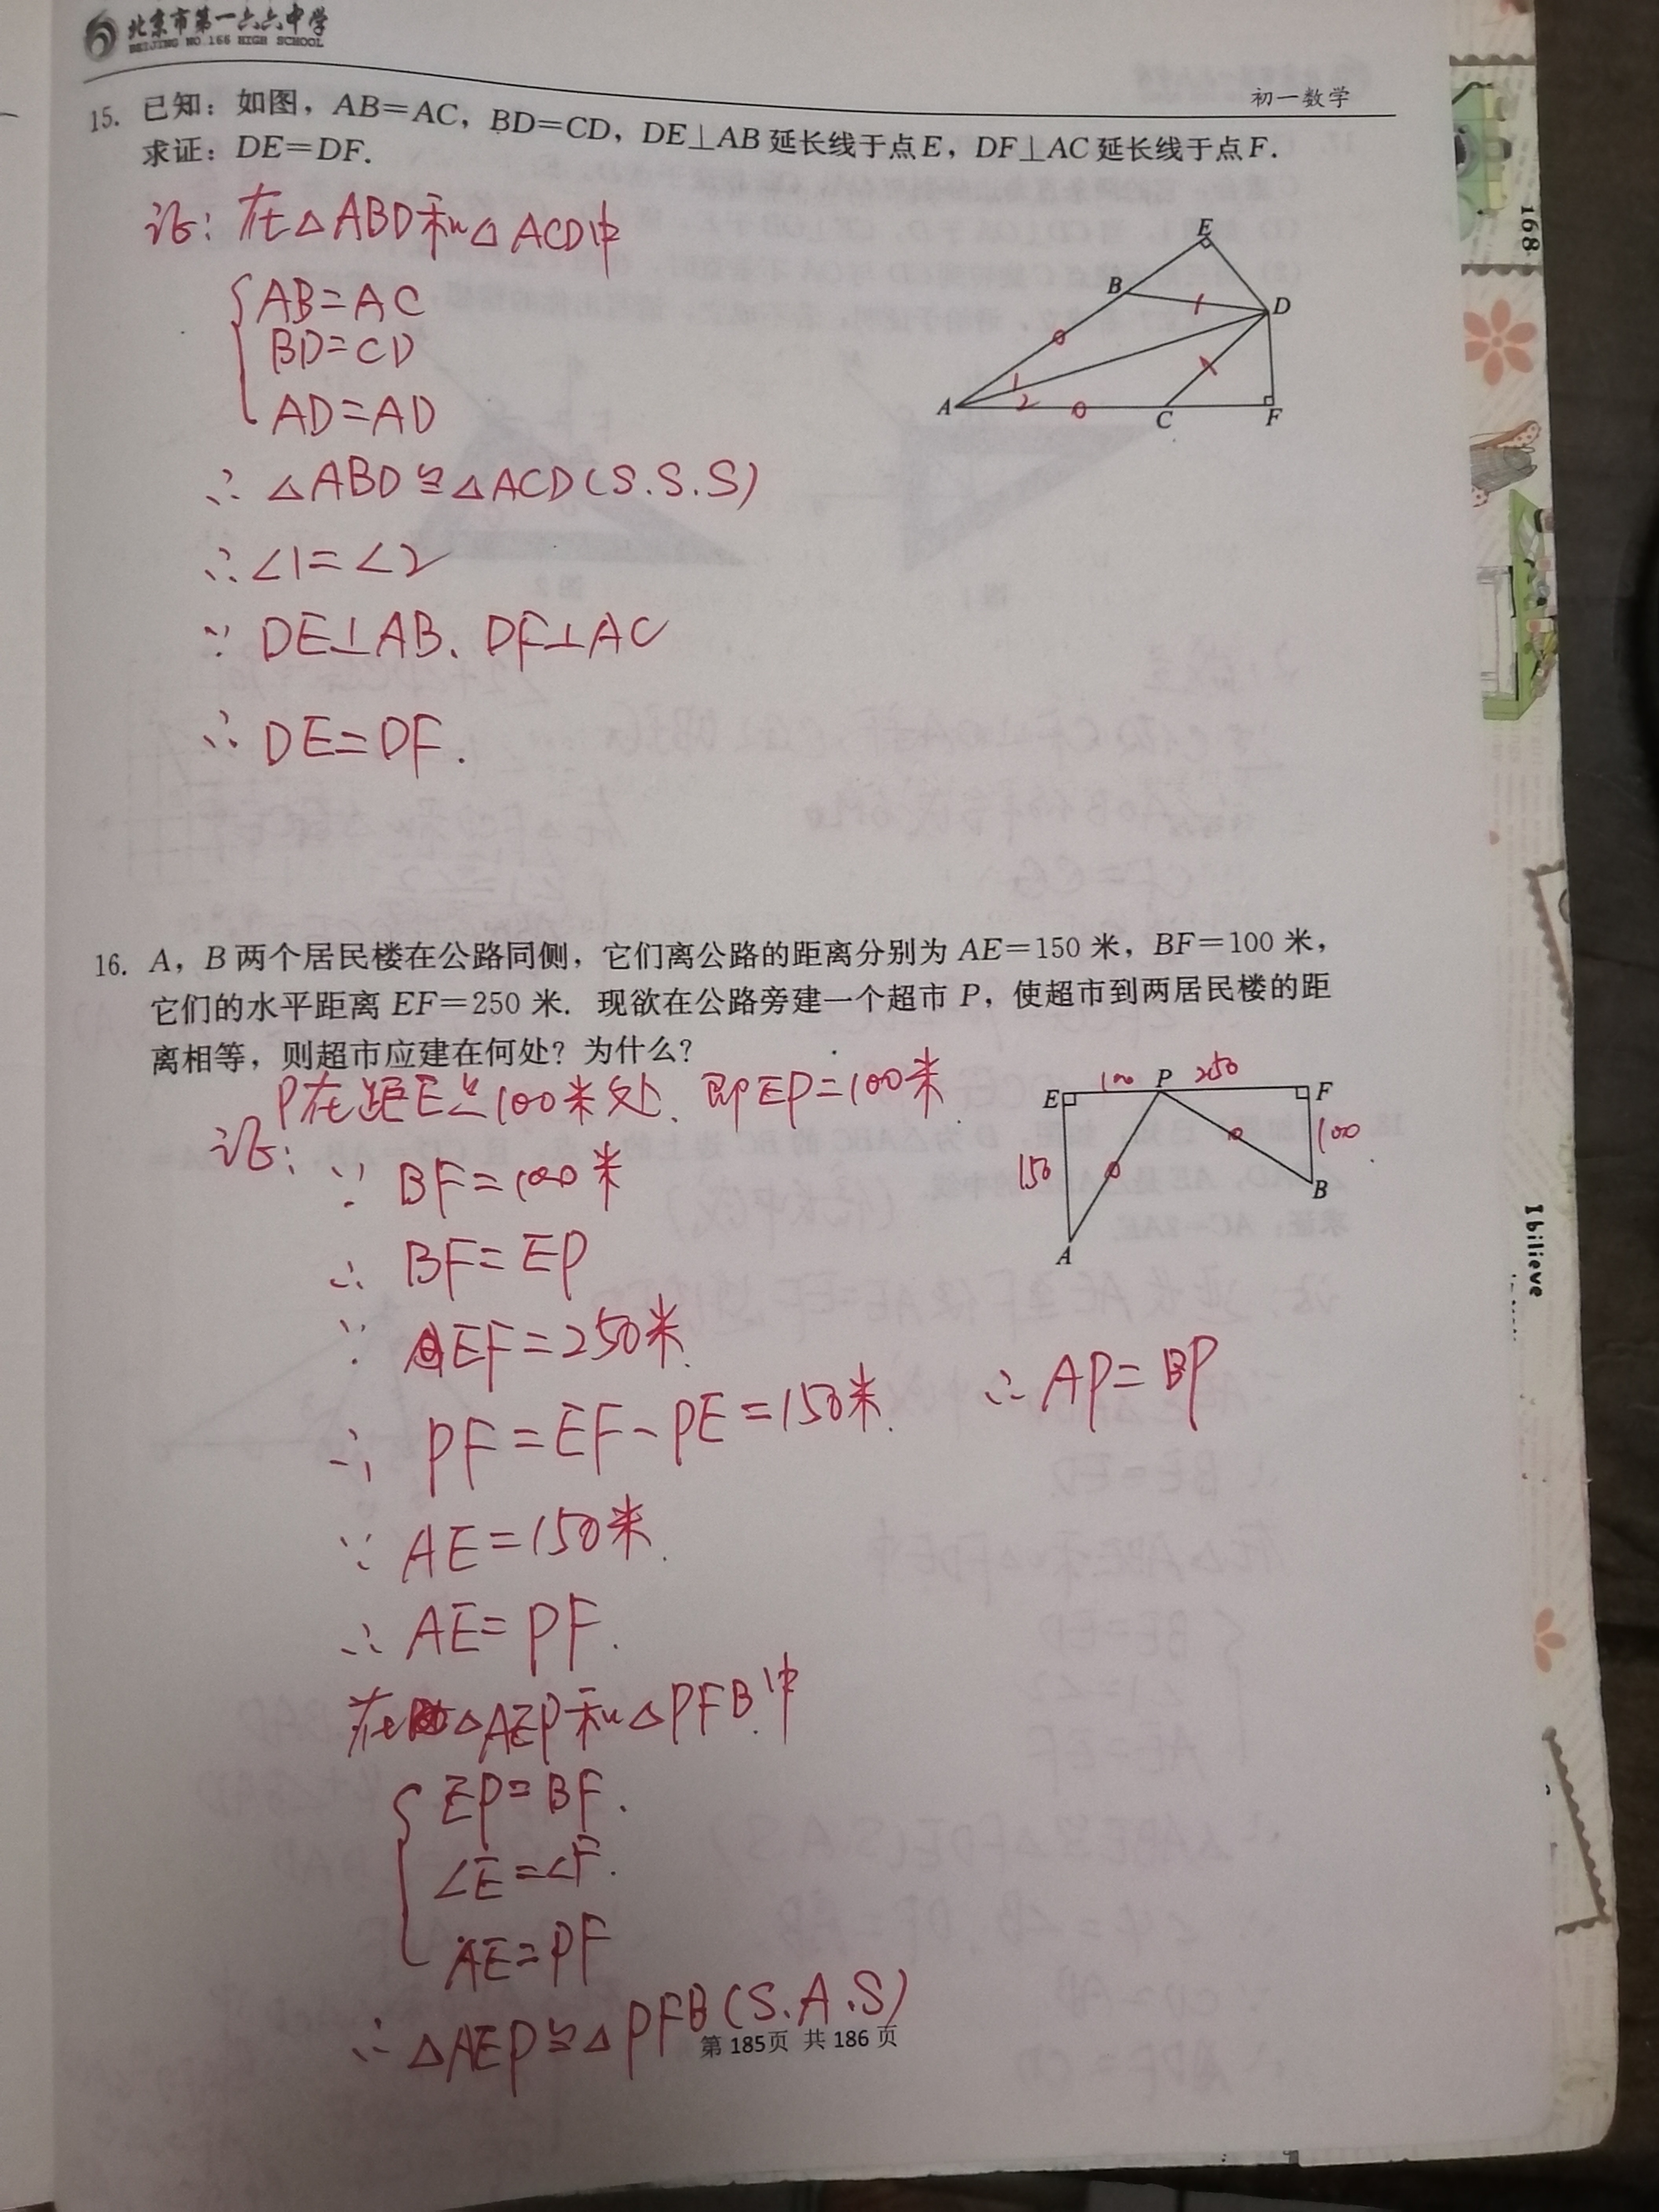 北京市第一六六中学
BEIJING NO.166 HIGH SCHOOL
初一数学
15. 已知：如图，AB=AC，BD=CD，DE⊥AB 延长线于点E，DF⊥AC 延长线于点F.
求证：DE=DF.
证：在△ABD和△ACD中
AB=AC
BD=CD
AD=AD
∴ △ABD≌△ACD(S.S.S)
∴∠1=∠2
∵ DE⊥AB、DF⊥AC
∴ DE=DF.
E
B
D
1
2
A
C
F
16. A，B 两个居民楼在公路同侧，它们离公路的距离分别为 AE=150 米，BF=100 米，
它们的水平距离 EF=250 米. 现欲在公路旁建一个超市 P，使超市到两居民楼的距
离相等，则超市应建在何处？为什么？
P在距E点100米处、即EP=100米
证：
∵ BF=100米
∴ BF=EP
∵ EF=250米.
∴ PF=EF-PE=150米.
∵ AE=150米.
∴ AE=PF.
在△AEP和△PFB中
EP=BF.
∠E=∠F.
AE=PF
∴ △AEP≌△PFB(S.A.S)
∴ AP=BP
E 100 P 250 F
150
100
B
A
第 185页 共 186 页
168
I bilieve